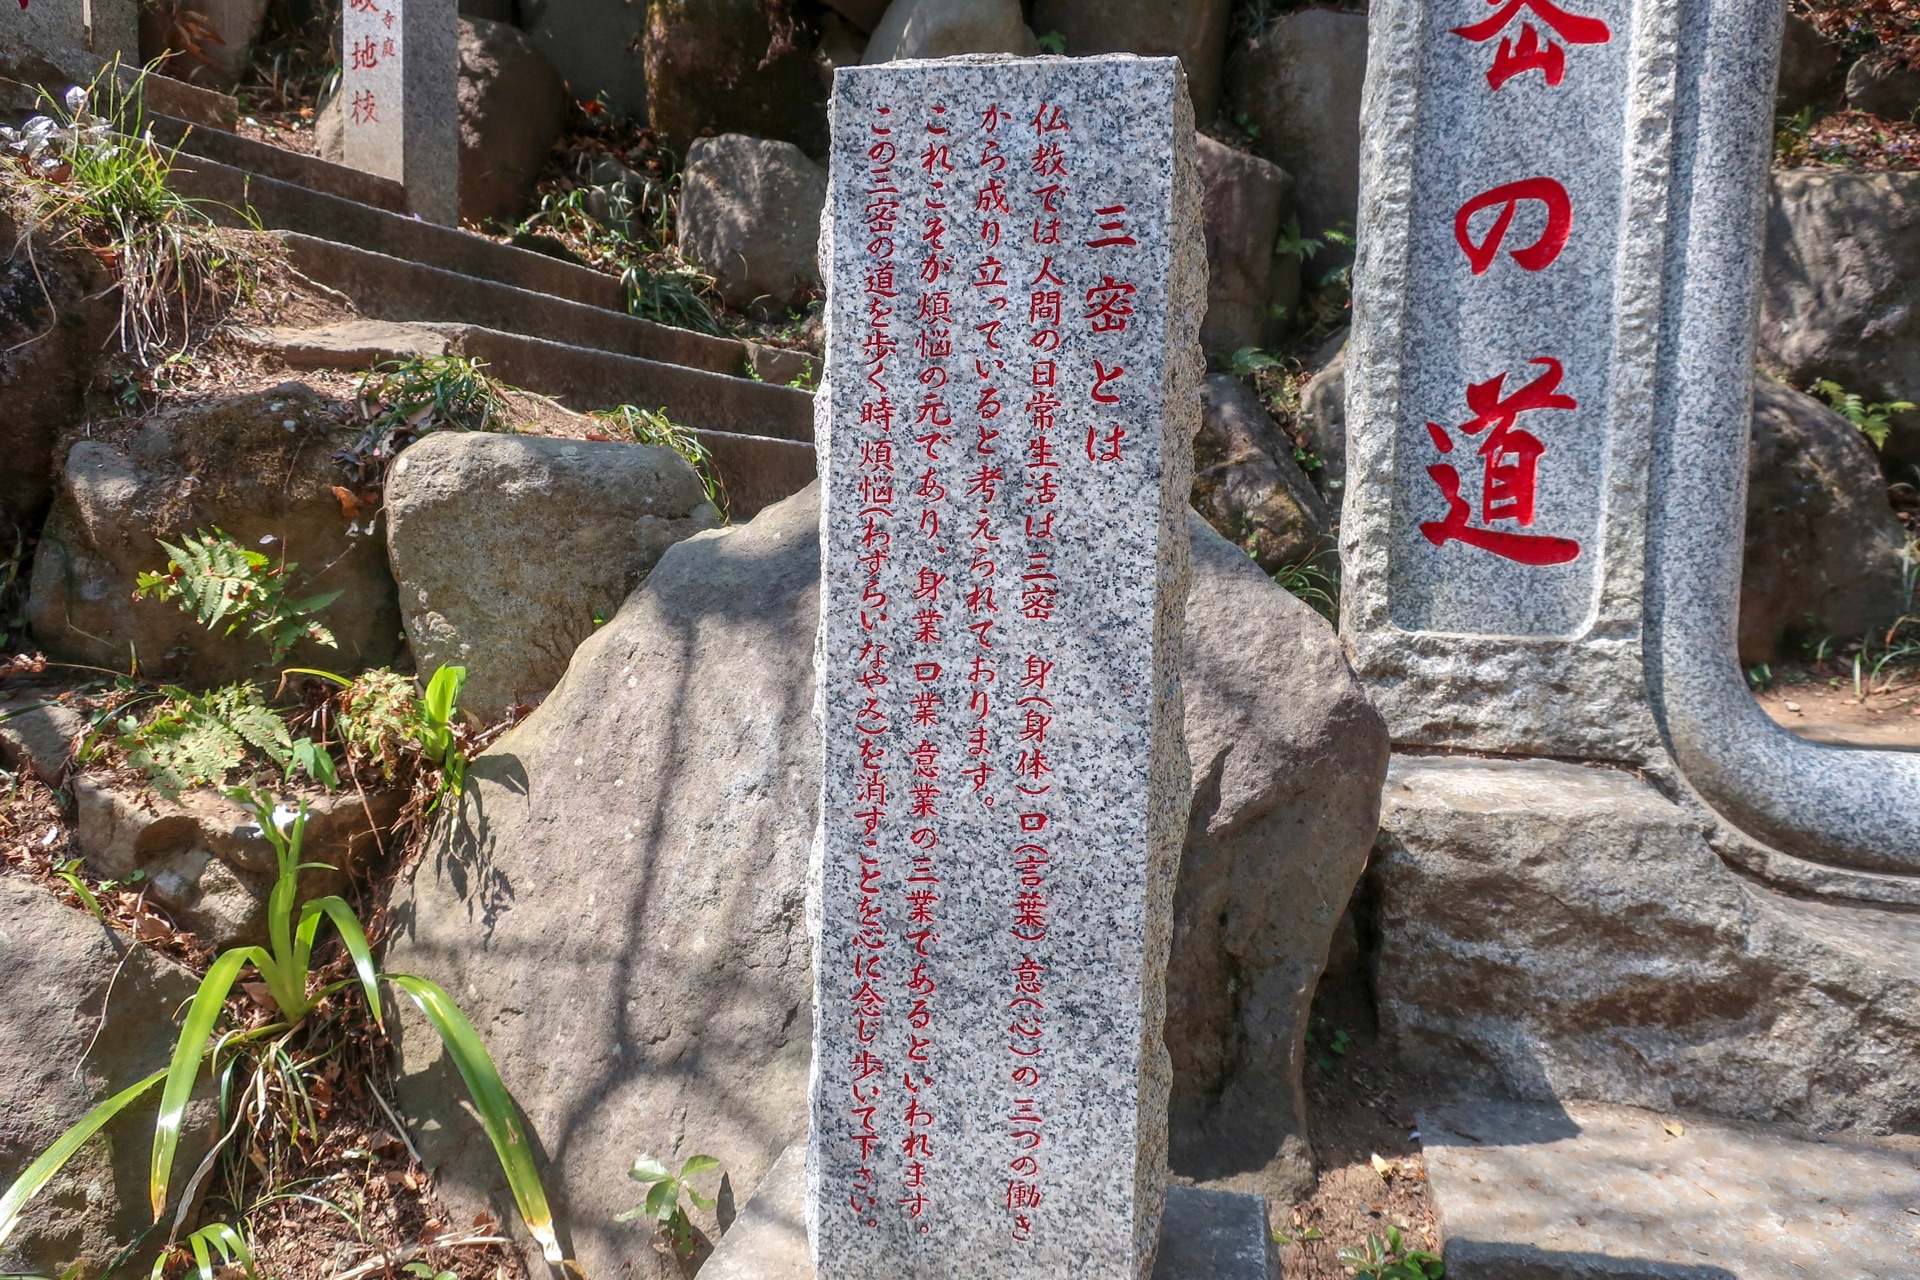 密の道
三密とは
仏教では人間の日常生活は三密 身(身体)口(言葉)意(心)の三つの働き
から成り立っていると考えられております。
これこそが煩悩の元であり、身業 口業 意業の三業であるといわれます。
この三密の道を歩く時煩悩(わずらいなやみ)を消すことを心に念じ歩いて下さい。
寺庭
地枝